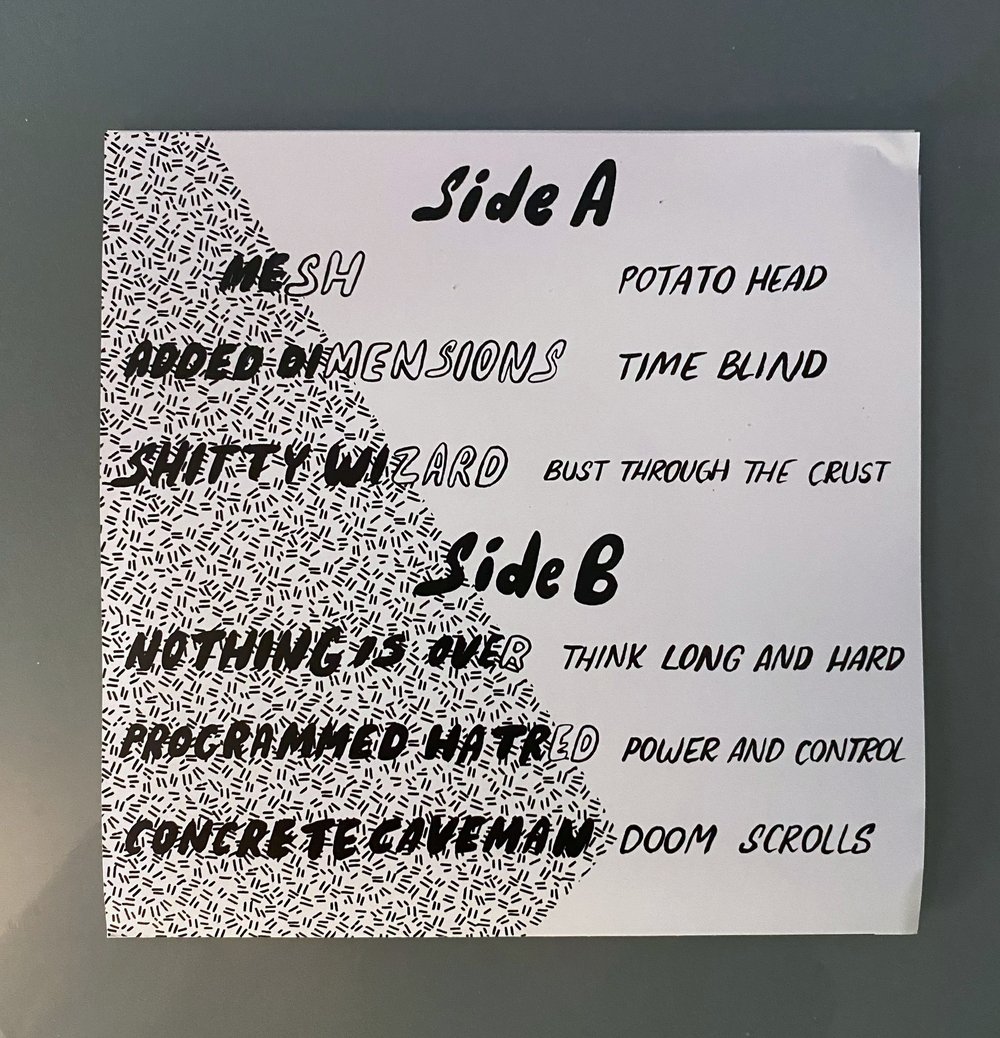 Side A
MESH POTATO HEAD
ADDED DIMENSIONS TIME BLIND
SHITTY WIZARD BUST THROUGH THE CRUST
Side B
NOTHING IS OVER THINK LONG AND HARD
PROGRAMMED HATRED POWER AND CONTROL
CONCRETE CAVEMAN DOOM SCROLLS